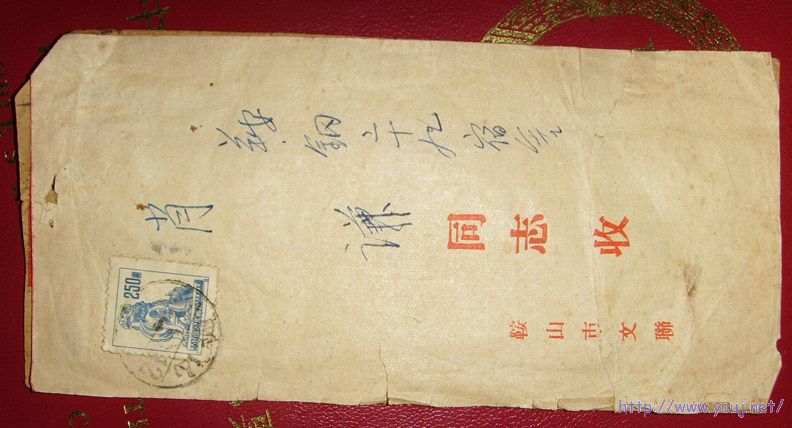 鞍鋼二十九宿舍
肖谦
同志收
鞍山市文聯
250
http://www.youj.net/